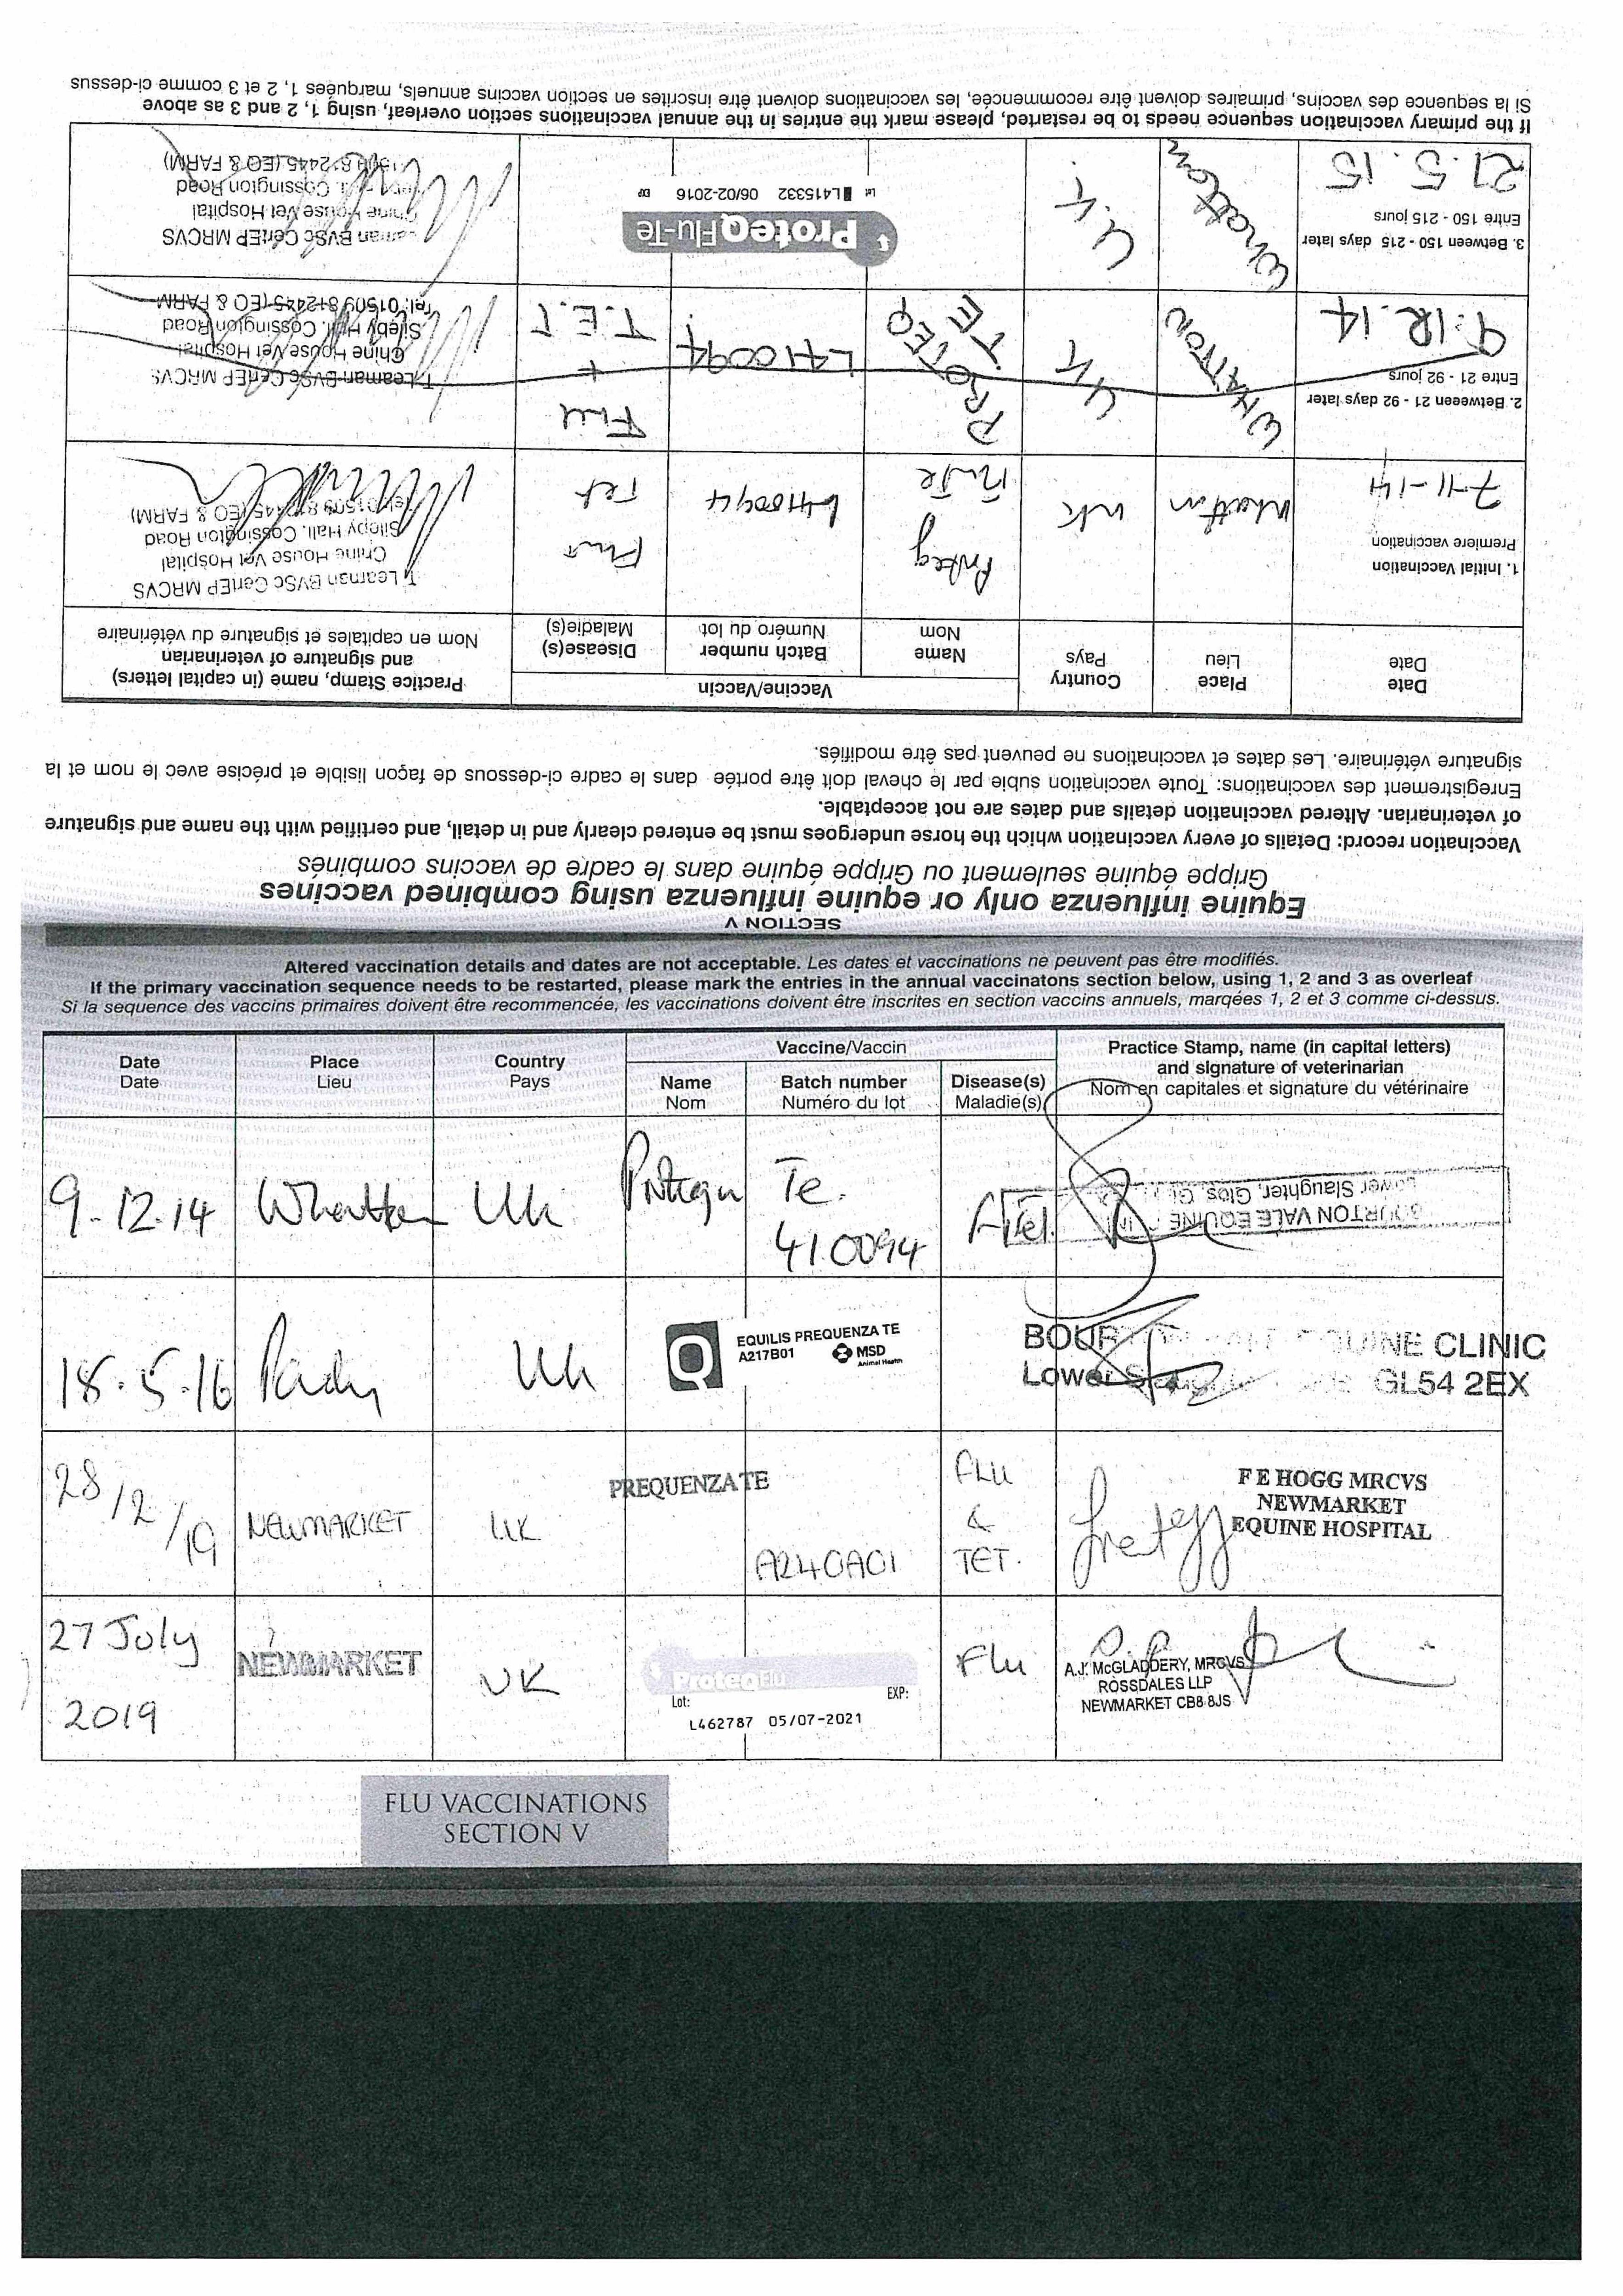 SECTION V
Equine influenza only or equine influenza using combined vaccines
Grippe équine seulement ou Grippe équine dans le cadre de vaccins combinés
Vaccination record: Details of every vaccination which the horse undergoes must be entered clearly and in detail, and certified with the name and signature
of veterinarian. Altered vaccination details and dates are not acceptable.
Enregistrement des vaccinations: Toute vaccination subie par le cheval doit être portée dans le cadre ci-dessous de façon lisible et précise avec le nom et la
signature vétérinaire. Les dates et vaccinations ne peuvent pas être modifiés.
Date
Date
Place
Lieu
Country
Pays
Vaccine/Vaccin
Name
Nom
Batch number
Numéro du lot
Disease(s)
Maladie(s)
Practice Stamp, name (in capital letters)
and signature of veterinarian
Nom en capitales et signature du vétérinaire
1. Initial Vaccination
Premiere vaccination
7-11-14
Whatton
UK
Proteq
Flu Te
L410094
Flu +
Tet
T Leaman BVSc CertEP MRCVS
Chine House Vet Hospital
Sileby Hall, Cossington Road
Tel: 01509 812445 (EQ & FARM)
2. Betweeen 21 - 92 days later
Entre 21 - 92 jours
9.12.14
WHATTON
UK
PROTEQ
TE
L410094
Flu
+
T.E.T
T Leaman BVSc CertEP MRCVS
Chine House Vet Hospital
Sileby Hall, Cossington Road
Tel: 01509 812445 (EQ & FARM
3. Between 150 - 215 days later
Entre 150 - 215 jours
21.5.15
Whatton
U.K
ProteqFlu-Te
Lot L415332 06/02-2016 EXP
Leaman BVSc CertEP MRCVS
Chine House Vet Hospital
Hall, Cossington Road
01509 812445 (EQ & FARM)
If the primary vaccination sequence needs to be restarted, please mark the entries in the annual vaccinations section overleaf, using 1, 2 and 3 as above
Si la sequence des vaccins, primaires doivent être recommencée, les vaccinations doivent être inscrites en section vaccins annuels, marquées 1, 2 et 3 comme ci-dessus
Altered vaccination details and dates are not acceptable. Les dates et vaccinations ne peuvent pas être modifiés.
If the primary vaccination sequence needs to be restarted, please mark the entries in the annual vaccinatons section below, using 1, 2 and 3 as overleaf
Si la sequence des vaccins primaires doivent être recommencée, les vaccinations doivent être inscrites en section vaccins annuels, marqées 1, 2 et 3 comme ci-dessus.
Date
Date
Place
Lieu
Country
Pays
Vaccine/Vaccin
Name
Nom
Batch number
Numéro du lot
Disease(s)
Maladie(s)
Practice Stamp, name (in capital letters)
and signature of veterinarian
Nom en capitales et signature du vétérinaire
9.12.14
Whatton
Uk
Te.
410094
BOURTON VALE EQUINE CLINIC
Lower Slaughter, Glos,
18.5.16
Uk
EQUILIS PREQUENZA TE
A217B01
MSD
Animal Health
EQUINE CLINIC
Lower GL54 2EX
28/2/19
NEWMARKET
UK
PREQUENZA TE
A240A01
FLU
&
TET.
F E HOGG MRCVS
NEWMARKET
EQUINE HOSPITAL
27 July
2019
NEWMARKET
UK
ProteqFlu
Lot: EXP:
L462787 05/07-2021
Flu
A.J. McGLADDERY, MRCVS
ROSSDALES LLP
NEWMARKET CB8 8JS
FLU VACCINATIONS
SECTION V